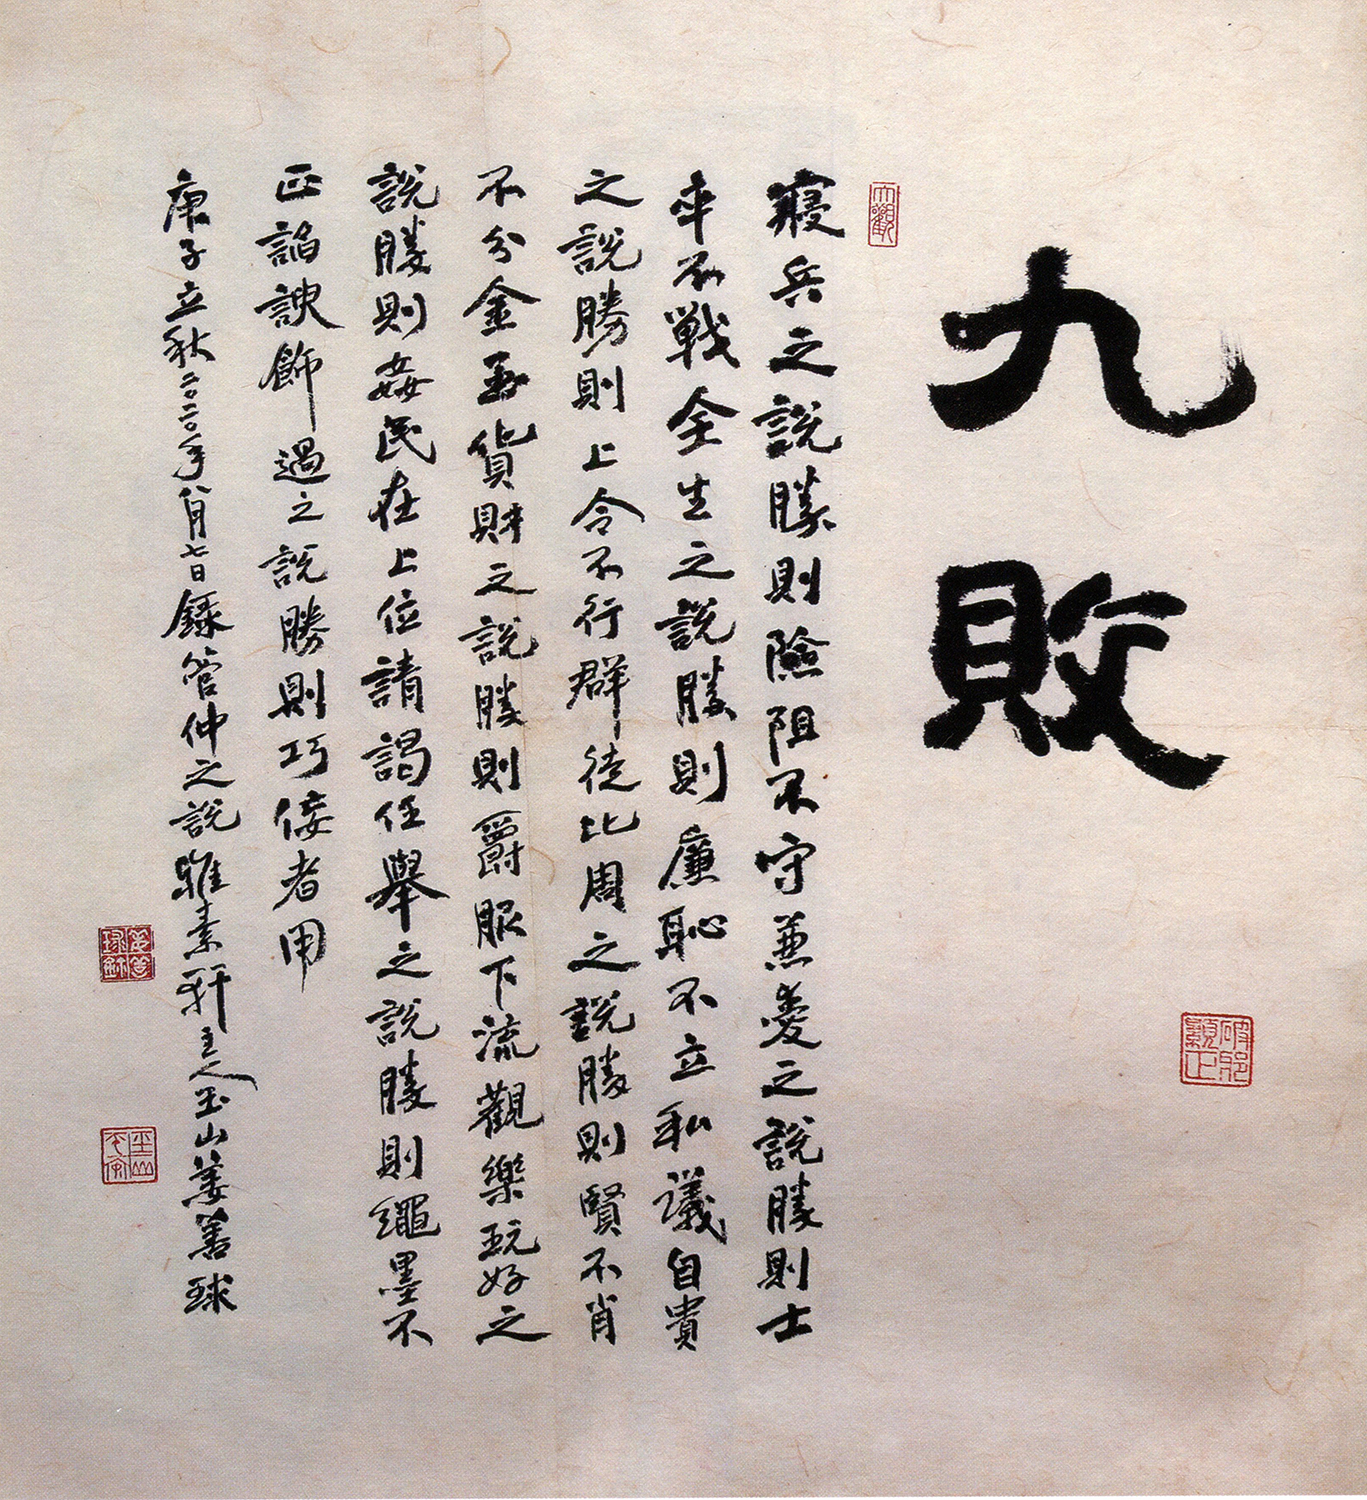 九敗
破邪顯正
大觀
寢兵之說勝則險阻不守兼愛之說勝則士
卒不戰全生之說勝則廉恥不立私議自貴
之說勝則上令不行群徒比周之說勝則賢不肖
不分金玉貨財之說勝則爵服下流觀樂玩好之
說勝則姦民在上位請謁任舉之說勝則繩墨不
正諂諛飾過之說勝則巧佞者用
庚子立秋二〇二〇年八月七日錄管仲之說雅素軒主人玉山姜善球
姜善球鉥
玉山